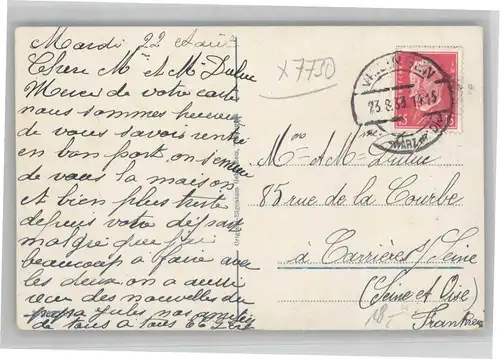 Mardi 22 Août
Chere Mme et Mr Dulue
Merci de votre carte
nous sommes heureux
de vous savoir rentré
en bon port on s'ennuie
de vous la maison
et bien plus triste
depuis votre départ
malgré que j'ai
beaucoup à faire avec
les deux on a aussi
recu des nouvelles du
papa Jules nos amitiés
de tous à tous
x 7730
VILLINGEN
23.8.33.
SCHWARZWALD
Mme et Mr Dulue
85 rue de la Courbe
à Carrières s/Seine
(Seine et Oise)
France
18.-